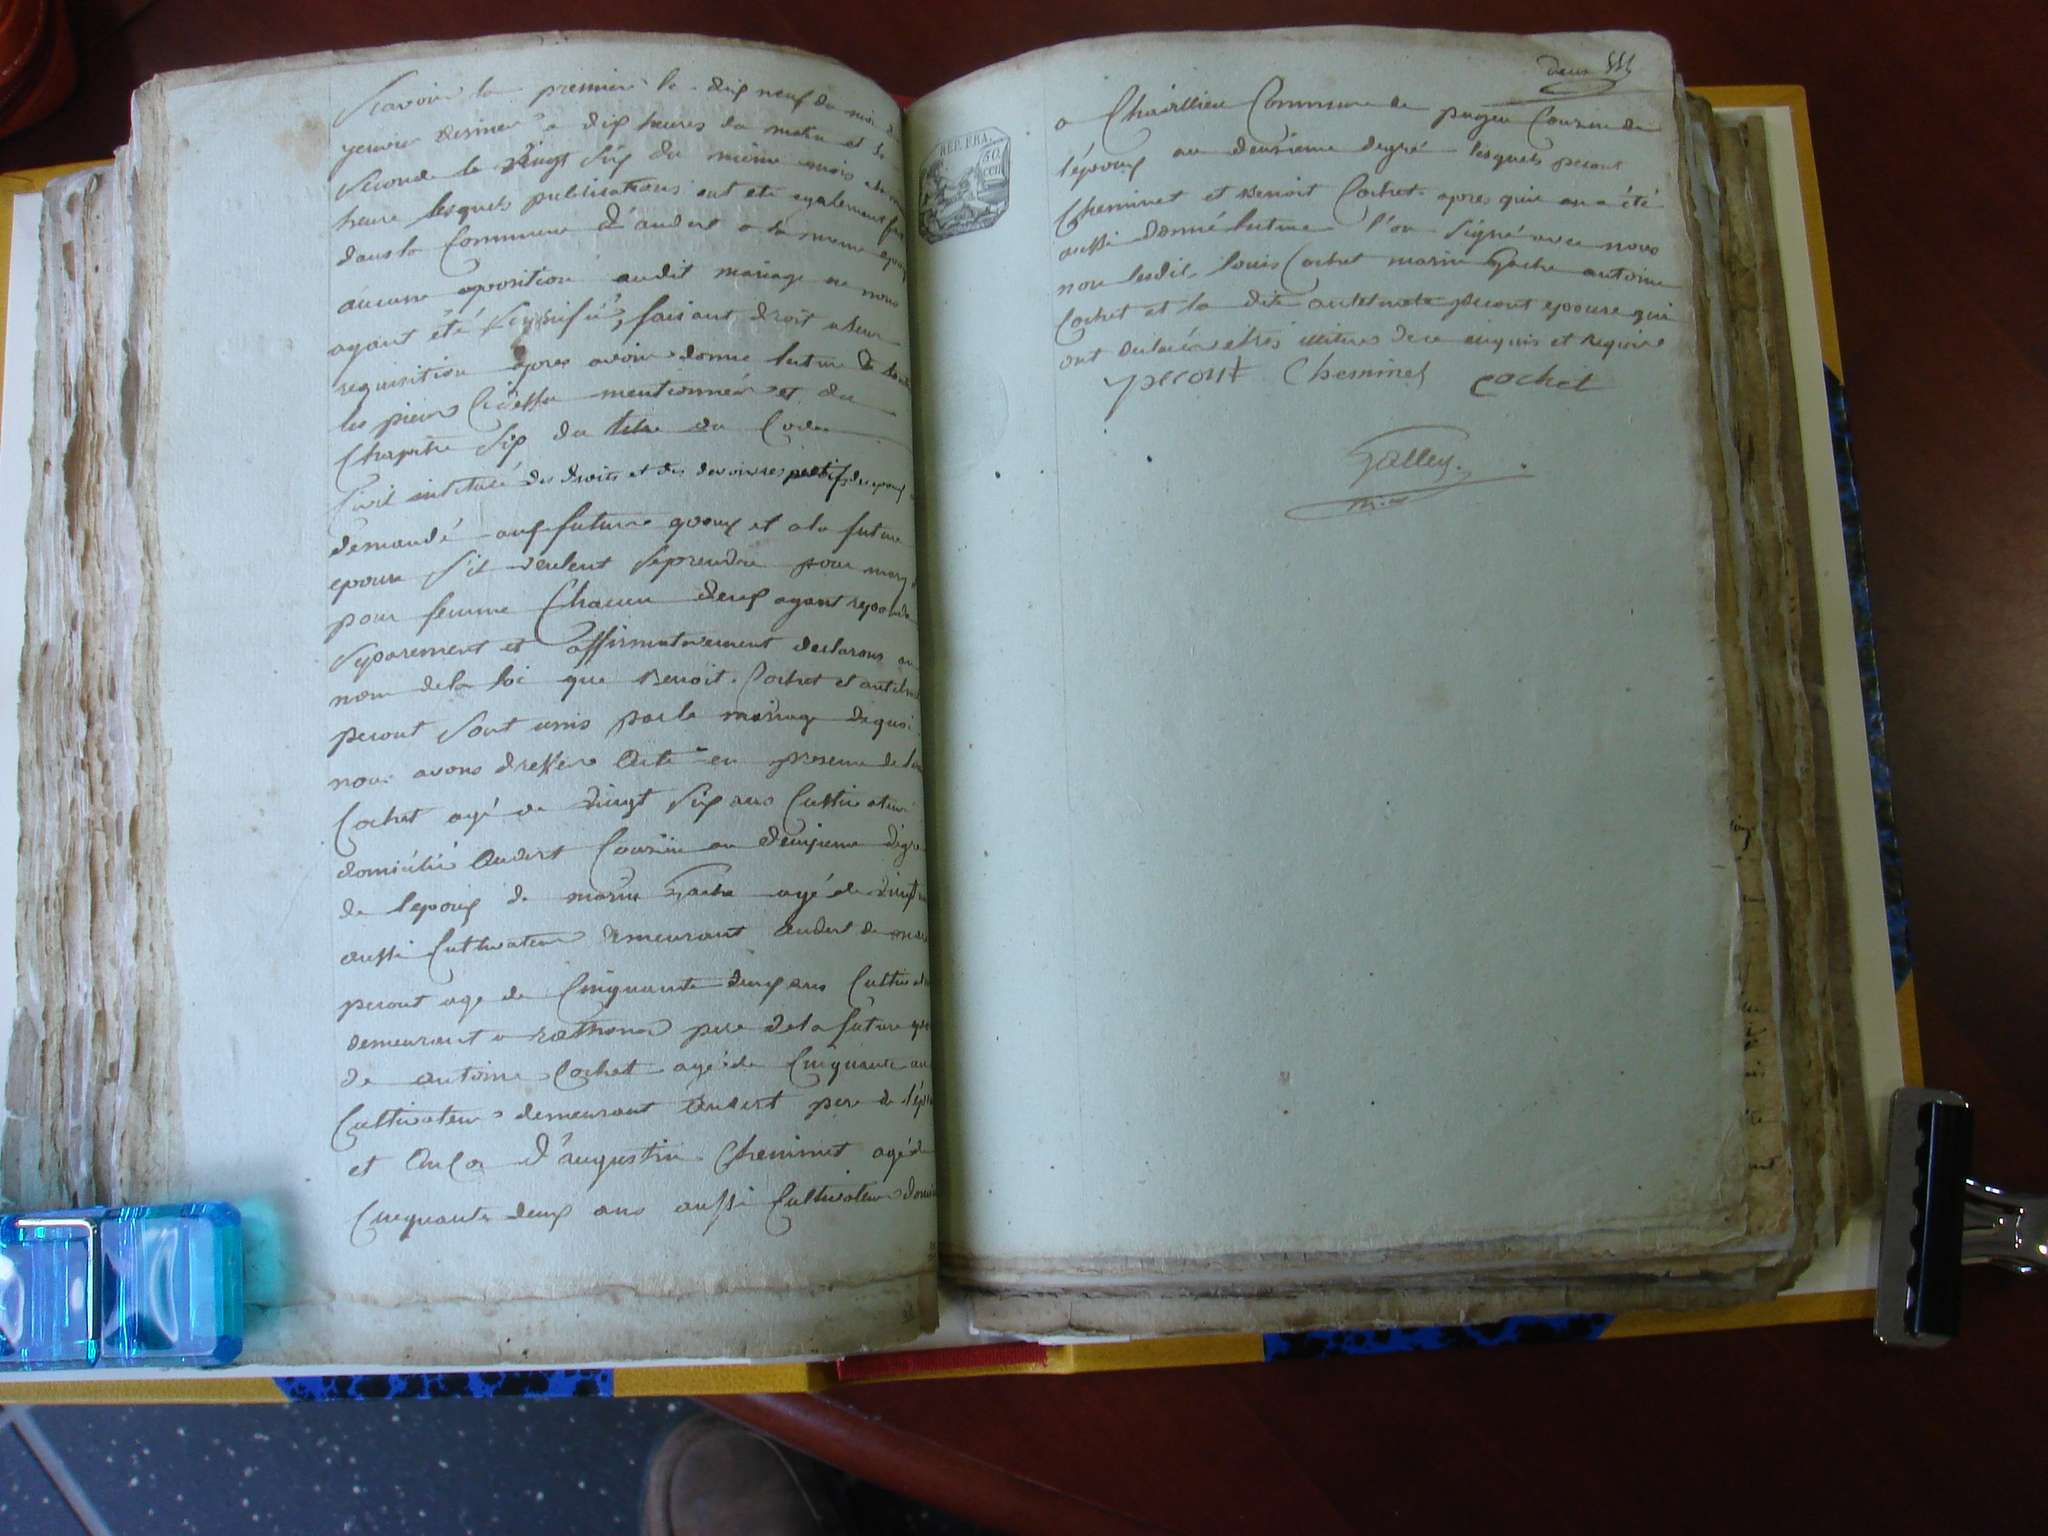 Scavoir la premiere le dix neuf du mois de
janvier dernier a dix heures du matin et la
seconde le vingt six du même mois
heure lesquels publications ont eté egalement fai
dans la Commune d'andert a la meme epoq
aucune oposition audit mariage ne nous
ayant été signifiée, faisant droit a leur
requisition apres avoir donné lecture de
les pieces Cidessu mentionnée et du
Chapitre six du titre du Code
Civil intitulé des droits et des devoirs respectifs des epoux
demandé aux future epoux et a la future
epouse s'il veulent seprendre pour mary
pour femme Chacun deux ayant repondu
separement et affirmativement declarons au
nom dela loi que Benoit Cochet et antelme
peront sont unis par le mariage dequoi
nous avons dressée acte en presence de
Cochet agé de vingt six ans Cultivateur
domicilié andert Cousin au deuxieme degré
de lepoux de marin Gache agé de vingt
aussi Cultivateur demeurant andert de
peront age de Cinquante deux ans Cultivat
demeurant a rothonod pere dela future epo
de antoine Cochet agé de Cinquante an
Cultivateur demeurant andert pere de l'épo
et encor d'augustin Cheminet agé de
Cinquante deux ans aussi Cultivateur domi
deux
REP. FRA.
50
cen
a Commune de pugeu Cousin de
l'époux au deuxieme degré lesquels peront
Cheminet et Benoit Cochet apres quil en a été
aussi donné lecture l'on signé avec nous
non lesdit louis Cochet marin Gache antoine
Cochet et la dite antelmete peront epouse qui
ont declarée etres de ce enquis et require
peront Cheminet cochet
Galley